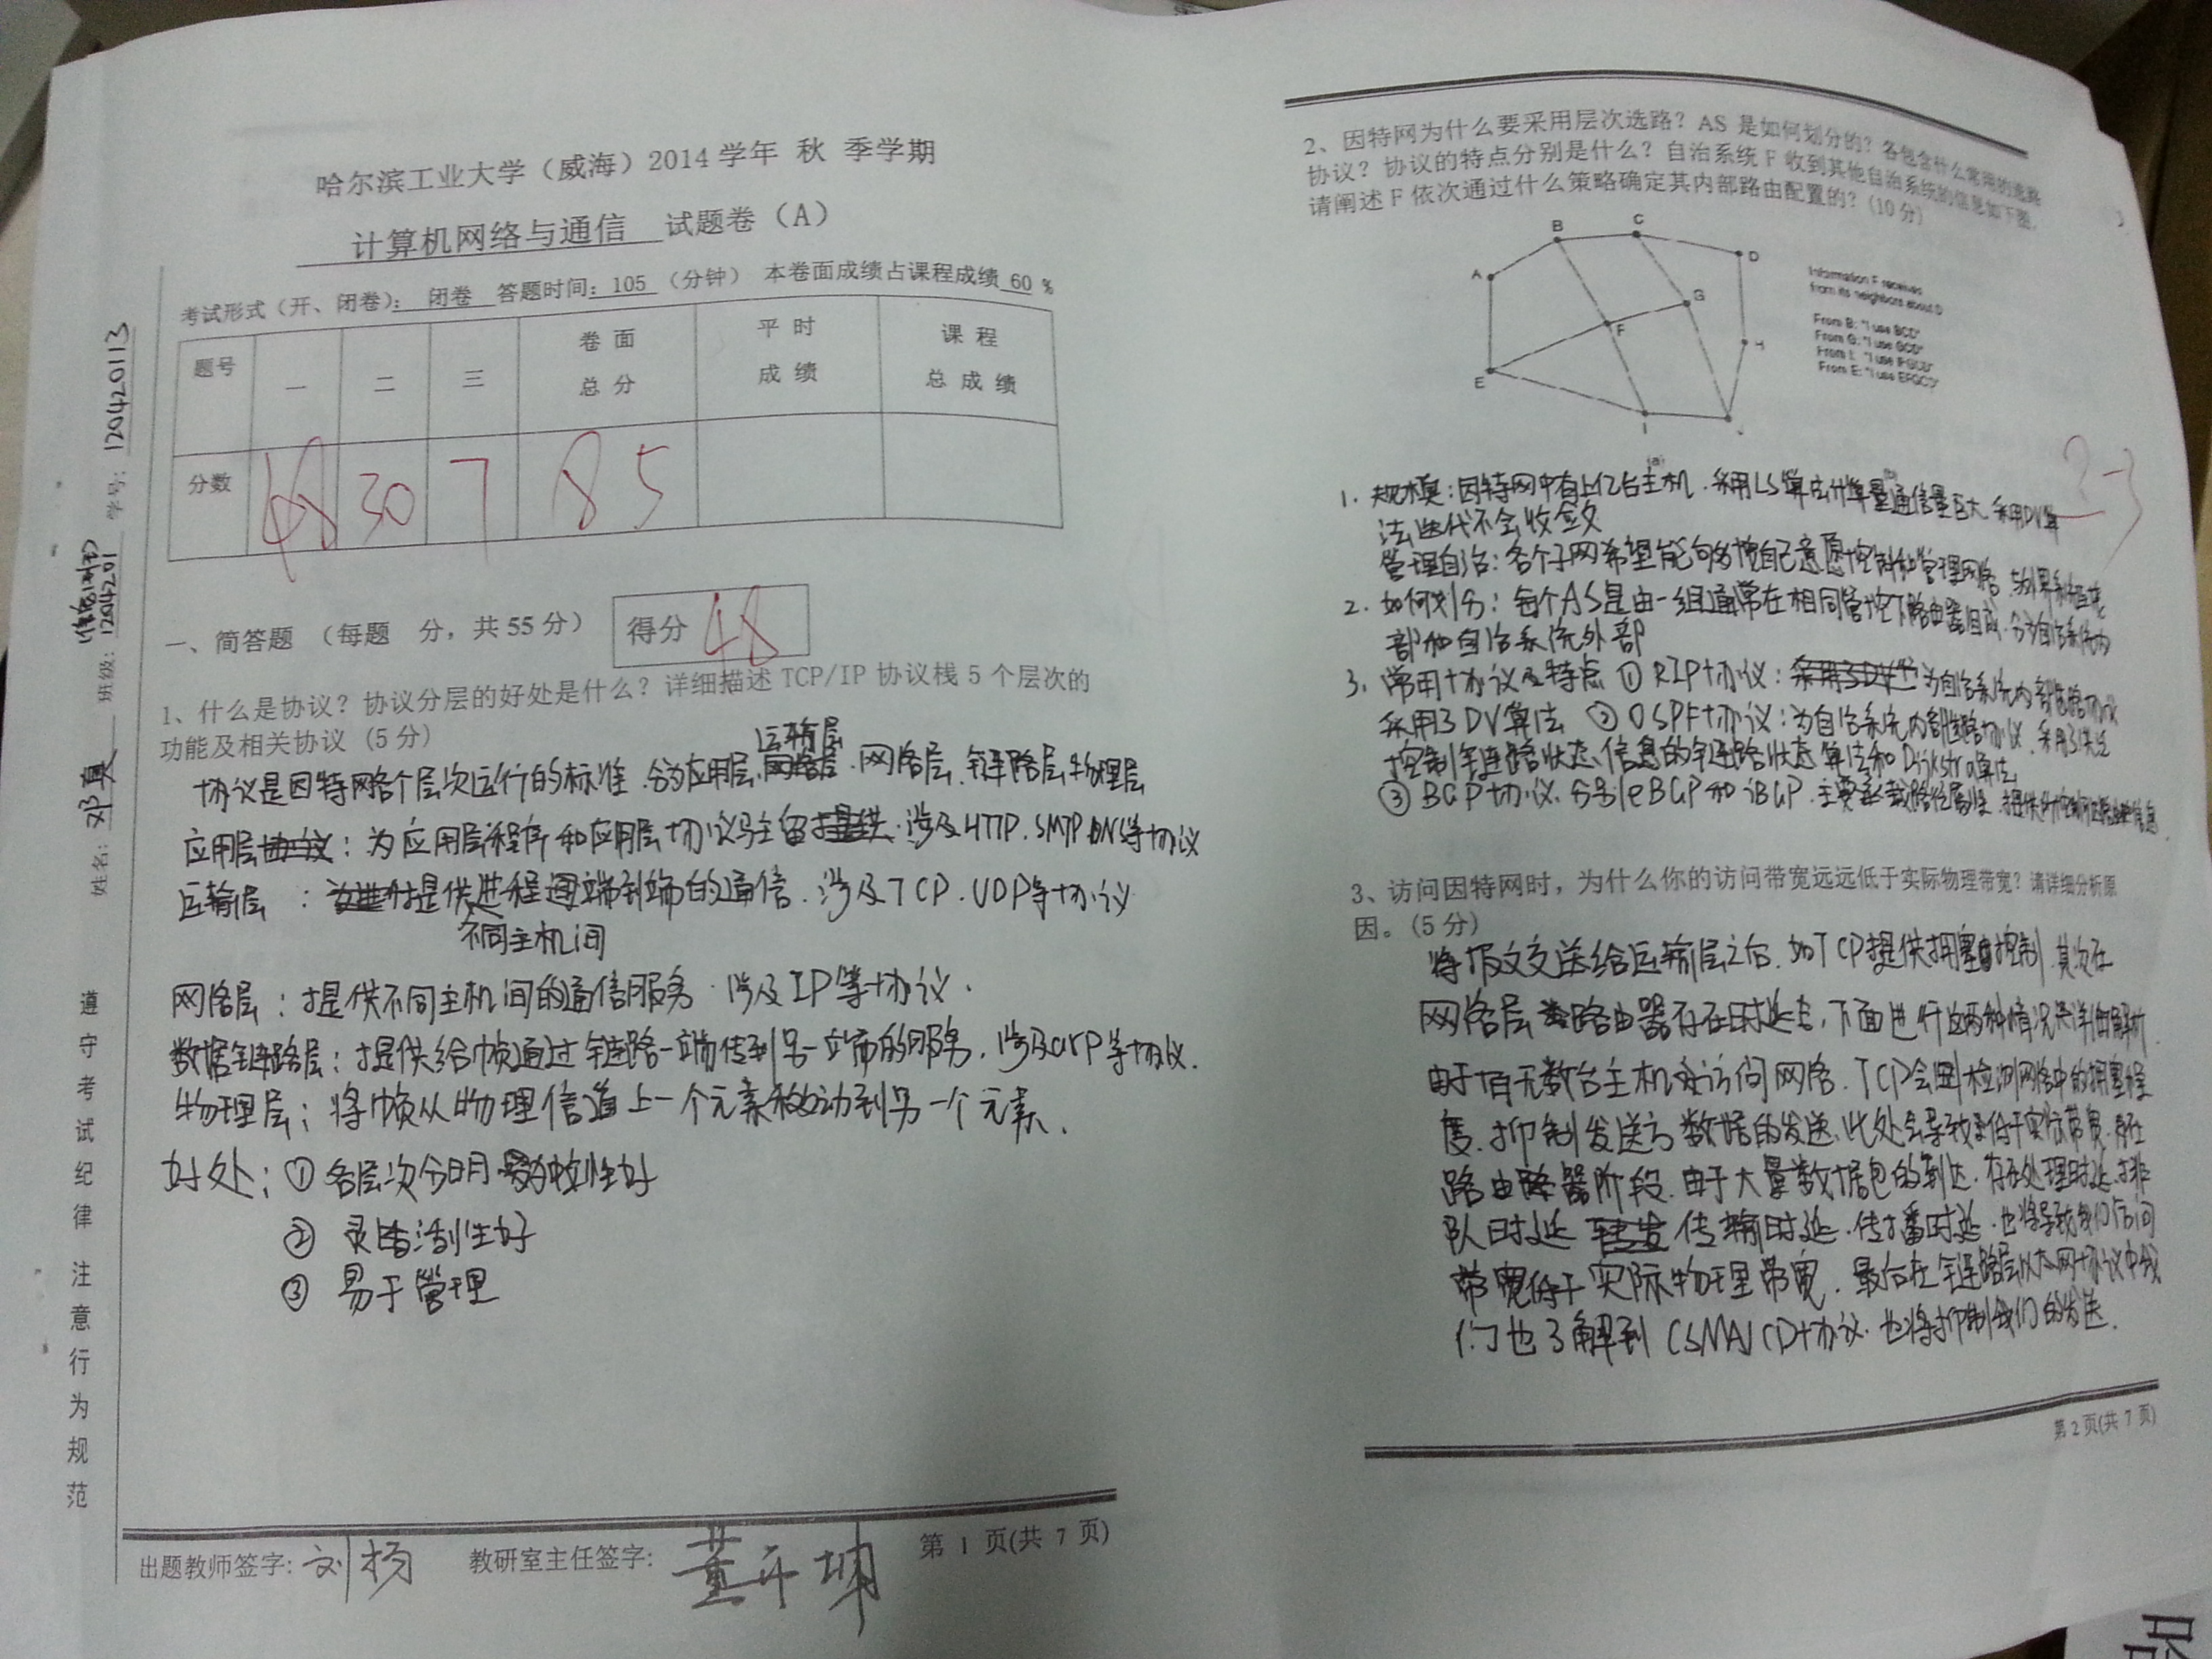 哈尔滨工业大学（威海）2014 学年 秋 季学期
计算机网络与通信 试题卷（A）
考试形式（开、闭卷）： 闭卷 答题时间：105 （分钟） 本卷面成绩占课程成绩 60 %
题号 一 二 三 卷面总分 平时成绩 课程总成绩
分数 48 30 7 85
一、简答题 （每题 分，共 55 分） 得分 48
1、什么是协议？协议分层的好处是什么？详细描述 TCP/IP 协议栈 5 个层次的
功能及相关协议（5 分）
运输层
协议是因特网各个层次运行的标准．分为应用层、网络层．网络层．链路层．物理层
应用层协议：为应用层程序和应用层协议驻留提供．涉及HTTP．SMTP DNS等协议
运输层：提供进程端到端的通信．涉及TCP．UDP等协议
不同主机间
网络层：提供不同主机间的通信服务．涉及IP等协议．
数据链路层：提供给帧通过链路一端传到另一端的服务．涉及arp等协议．
物理层：将帧从物理信道上一个元素移动到另一个元素．
好处：① 各层次分明 性好
② 灵活性好
③ 易于管理
遵守考试纪律 注意行为规范
姓名：邓真 班级：1204201 学号：120420113
出题教师签字：刘扬 教研室主任签字：董开坤 第 1 页(共 7 页)
2、因特网为什么要采用层次选路？AS 是如何划分的？各包含什么常用的选路
协议？协议的特点分别是什么？自治系统 F 收到其他自治系统的信息如下图，
请阐述 F 依次通过什么策略确定其内部路由配置的？(10 分)
A B C D E F G H I J
Information F receives
from its neighbors about D
From B: "I use BCD"
From G: "I use GCD"
From I: "I use IFGCD"
From E: "I use EFGCD"
(a)
1. 规模：因特网中有上亿台主机．采用LS算法计算量通信量巨大．采用DV算
法迭代不会收敛
管理自治：各个子网希望能够按自己意愿控制和管理网络
2. 如何划分：每个AS是由一组通常在相同管控下路由器组成．分为自治系统内
部和自治系统外部
3. 常用协议及特点 ① RIP协议：采用了DV 为自治系统内部选路协议
采用了DV算法 ② OSPF协议：为自治系统内部选路协议．采用了
控制链路状态信息的链路状态算法和Dijkstra算法
③ BGP协议．分别eBGP和iBGP．主要承载路径属性．提供
3、访问因特网时，为什么你的访问带宽远远低于实际物理带宽？请详细分析原
因。(5 分)
将报文交送给运输层之后．如TCP提供拥塞控制．其次在
网络层路由器存在时延．下面进行这两种情况详细解析．
由于有无数台主机访问网络．TCP会检测网络中的拥塞程
度．抑制发送方数据的发送．此处会导致低于实际带宽．在
路由器阶段．由于大量数据包的到达．存在处理时延．排
队时延 转发 传输时延．传播时延．也将导致我们访问
带宽低于实际物理带宽．最后在链路层以太网协议中我
们也了解到 CSMA/CD协议．也将抑制我们的发送．
第 2 页(共 7 页)